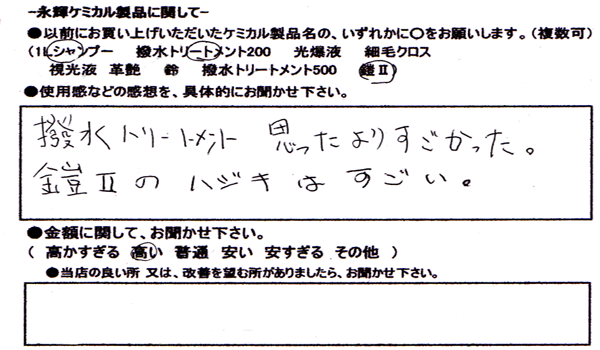 -永輝ケミカル製品に関して-
●以前にお買い上げいただいたケミカル製品名の、いずれかに〇をお願いします。(複数可)
(1Lシャンプー 撥水トリートメント200 光爆液 細毛クロス
視光液 革艶 鈴 撥水トリートメント500 鎧Ⅱ)
●使用感などの感想を、具体的にお聞かせ下さい。
撥水トリートメント 思ったよりすごかった。
鎧Ⅱのハジキはすごい。
●金額に関して、お聞かせ下さい。
( 高かすぎる 高い 普通 安い 安すぎる その他 )
●当店の良い所 又は、改善を望む所がありましたら、お聞かせ下さい。